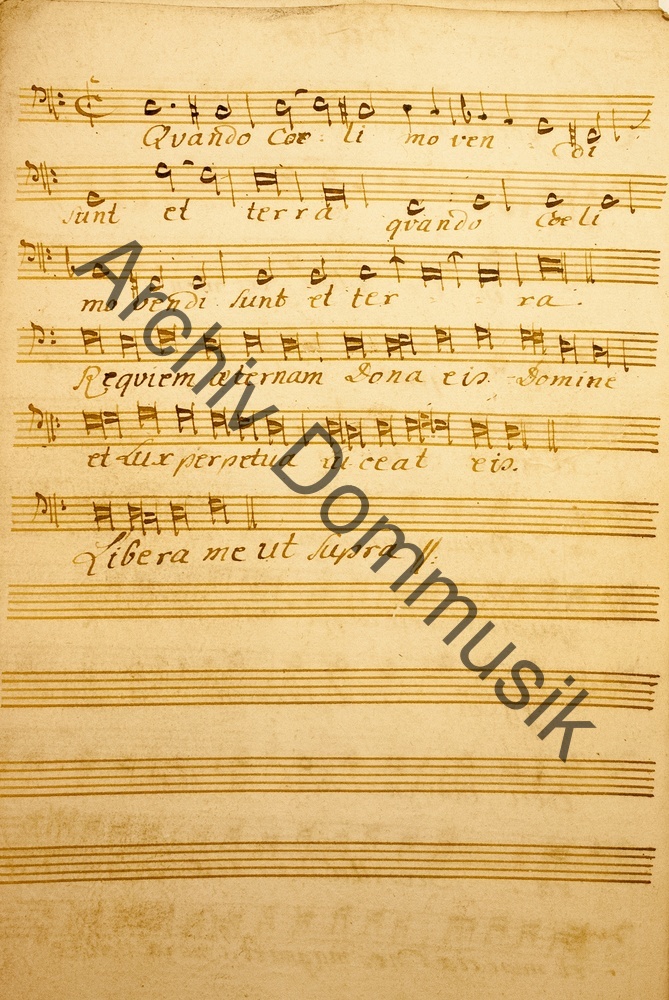 Quando Coe - li moven - di
sunt et terra quando Coeli
movendi sunt et ter - - ra.
Requiem æternam Dona eis. Domine
et Lux perpetua luceat eis.
Libera me ut supra
Archiv Dommusik